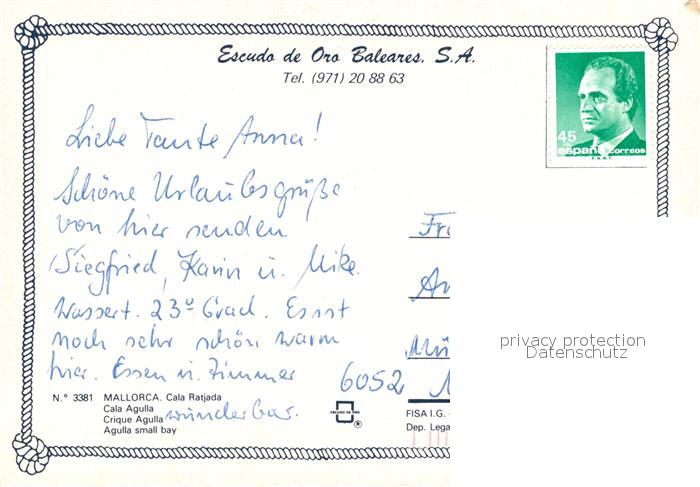 Escudo de Oro Baleares, S.A.
Tel. (971) 20 88 63
45
PTA
españa correos
F.N.M.T.
Liebe Tante Anna!
Schöne Urlaubsgrüße
von hier senden
Siegfried, Karin u. Mike.
Wassert. 23º Grad. Es ist
noch sehr schön warm
hier. Essen u. Zimmer
wunderbar.
Fr
An
Mü
6052
privacy protection
Datenschutz
N.º 3381 MALLORCA. Cala Ratjada
Cala Agulla
Crique Agulla
Agulla small bay
ESCUDO DE ORO
®
FISA I.G. -
Dep. Lega